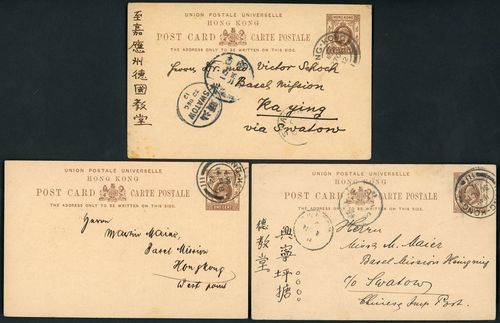 UNION POSTALE UNIVERSELLE
HONG KONG
POST CARD CARTE POSTALE
THE ADDRESS ONLY TO BE WRITTEN ON THIS SIDE.
至嘉應州德國教堂
Herrn Fr. und Victor Schoch
Basel Mission
Kaying
via Swatow
SWATOW
UNION POSTALE UNIVERSELLE
HONG KONG
POST CARD CARTE POSTALE
THE ADDRESS ONLY TO BE WRITTEN ON THIS SIDE
Herrn
Martin Maier
Basel Mission
Hongkong
West point
UNION POSTALE UNIVERSELLE
HONG KONG
POST CARD CARTE POSTALE
THE ADDRESS ONLY TO BE WRITTEN ON THIS SIDE
興寧坪塘
德教堂
Herrn
M. Maier
Basel Mission Hengning
c/o Swatow
Chinese Imp. Post.